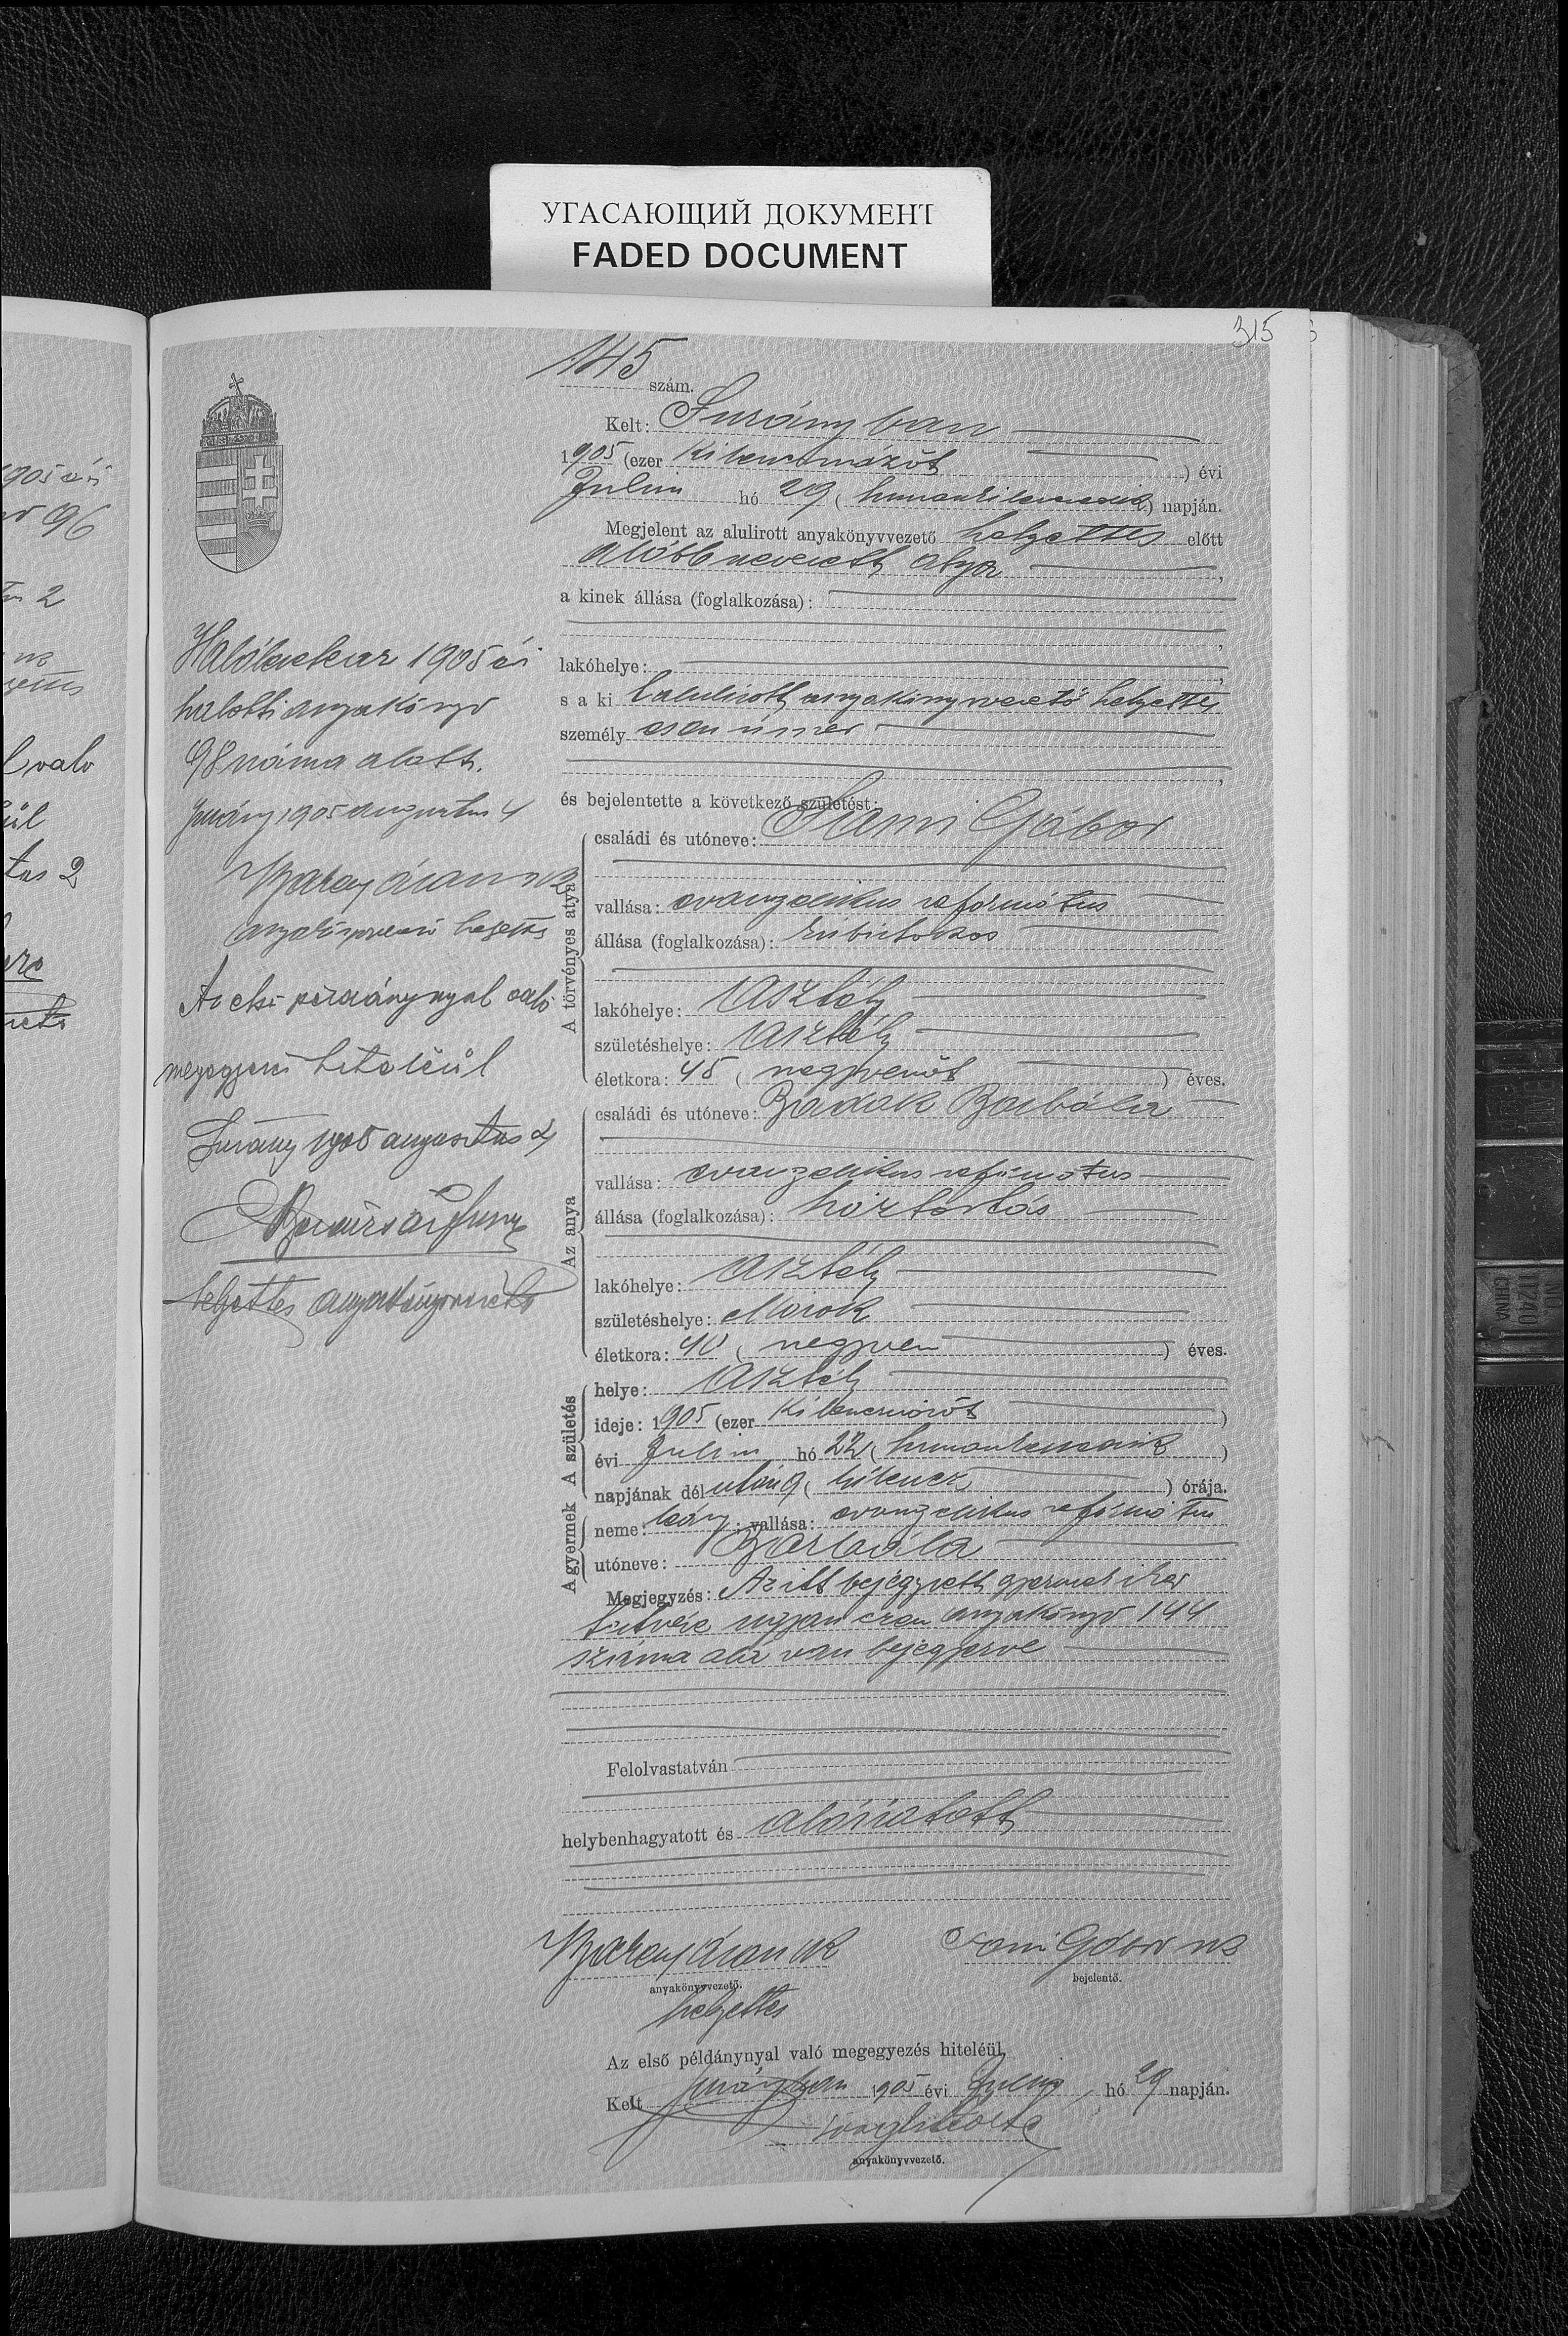 УГАСАЮЩИЙ ДОКУМЕНТ
FADED DOCUMENT
315
145 szám.
Kelt: Surányban
1905 (ezer kilencszázöt) évi
Julius hó 29 (huszonkilencedik) napján.
Megjelent az alulirott anyakönyvvezető helyettes előtt
alább nevezett atya,
a kinek állása (foglalkozása):
lakóhelye:
s a ki alulirott anyakönyvvezető helyettes
személyesen ismer
és bejelentette a következő születést:
A törvényes atya
családi és utóneve: Gábor
vallása: evangelikus református
állása (foglalkozása): kisbirtokos
lakóhelye: Asztély
születéshelye: Asztély
életkora: 45 (negyvenöt) éves.
Az anya
családi és utóneve: Badak Borbála
vallása: evangelikus református
állása (foglalkozása): háztartás
lakóhelye: Asztély
születéshelye: Marok
életkora: 40 (negyven) éves.
A születés
helye: Asztély
ideje: 1905 (ezer kilencszázöt)
évi Julius hó 22 (huszonkettedik)
napjának délután 9 (kilencz) órája.
A gyermek
neme: leány; vallása: evangelikus református
utóneve: Borbála
Megjegyzés: Az itt bejegyzett gyermek iker
testvére ugyan ezen anyakönyv 144
száma alá van bejegyezve
Felolvastatván
helybenhagyatott és aláíratott
anyakönyvvezető.
helyettes
Gábor sk
bejelentő.
Az első példánynyal való megegyezés hiteléül,
Kelt Surányban 1905 évi Julius, hó 29 napján.
anyakönyvvezető.
1905 évi
halotti anyakönyv
98 száma alatt.
Surány 1905 augusztus 4
anyakönyvvezető helyettes
Az első példánynyal való
megegyezés hiteléül
Surány 1905 augusztus 4
helyettes anyakönyvvezető